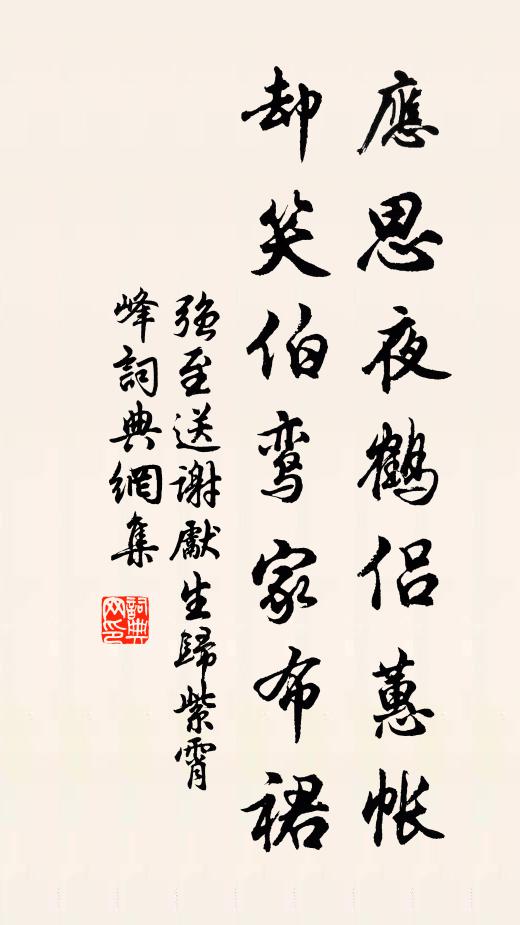 應思夜鶴侶蕙帳
却笑伯鸾家布裙
強至送謝獻生歸紫霄
峰詞典網集
詞典
网印